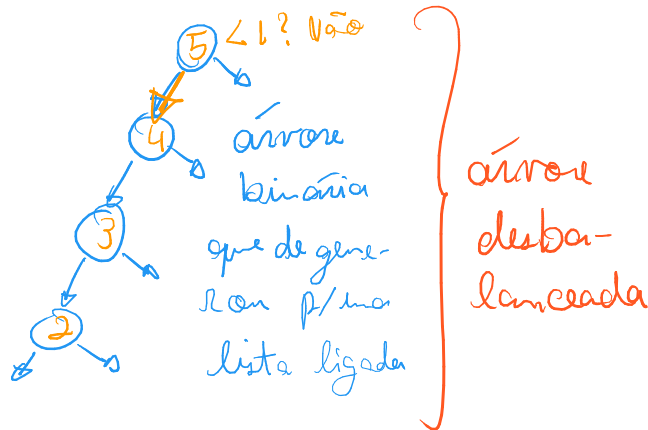 5 < 1? Não
4
3
2
árvore
binária
que degene-
rou p/ uma
lista ligada
árvore
desba-
lanceada